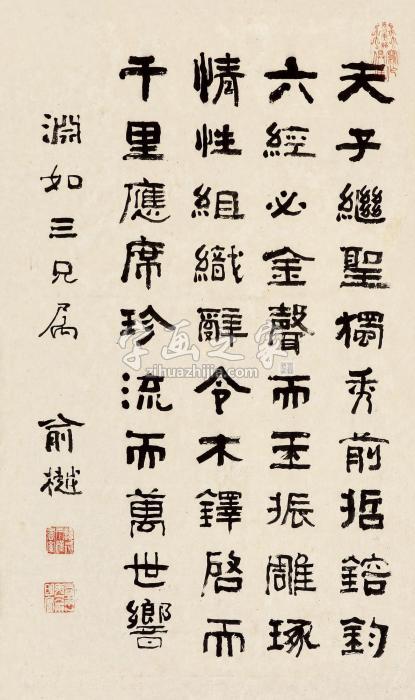 夫子繼聖獨秀前哲鎔鈞
六經必金聲而玉振雕琢
情性組織辭令木鐸啓而
千里應席珍流而萬世響
淵如三兄属
俞樾
字画之家
zihuazhijia.com